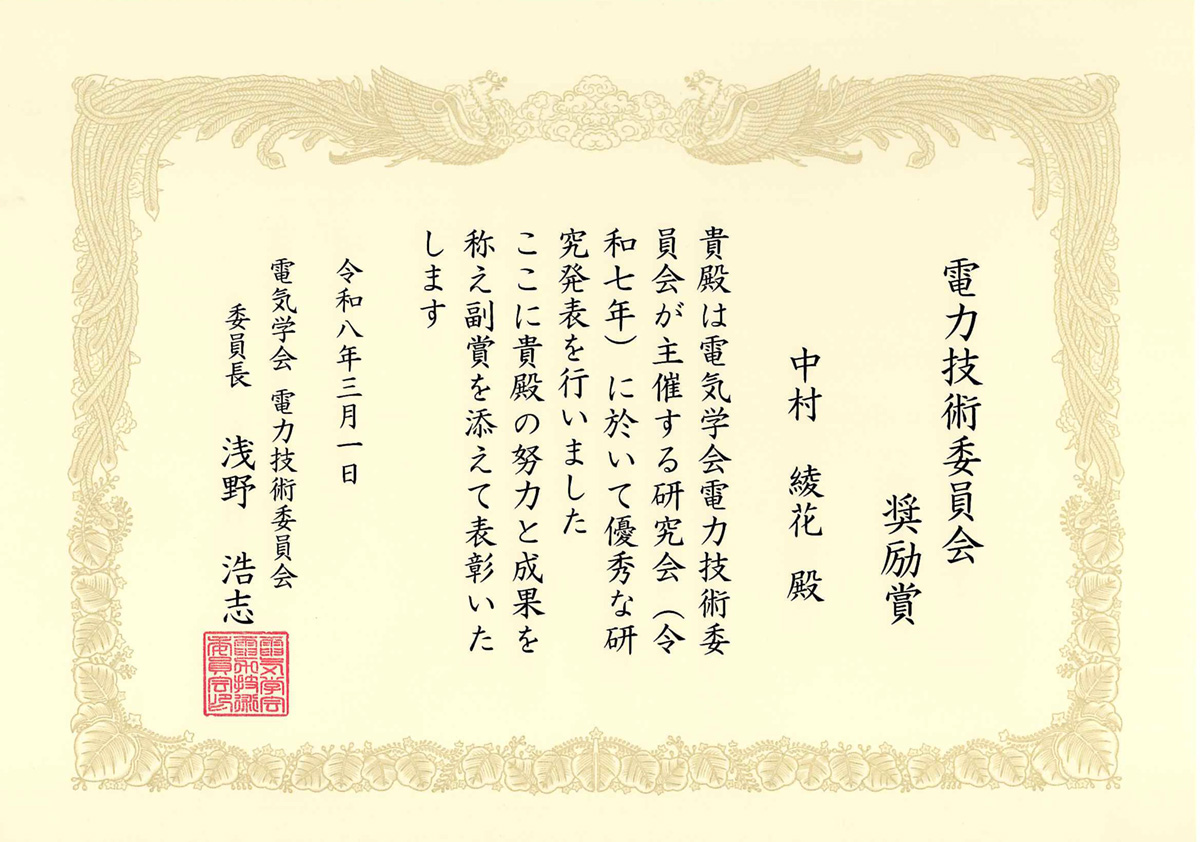 電力技術委員会
奨励賞
中村 綾花 殿
貴殿は電気学会電力技術委
員会が主催する研究会（令
和七年）に於いて優秀な研
究発表を行いました
ここに貴殿の努力と成果を
称え副賞を添えて表彰いた
します
令和八年三月一日
電気学会 電力技術委員会
委員長 浅野 浩志
電気学会
電力技術
委員会印